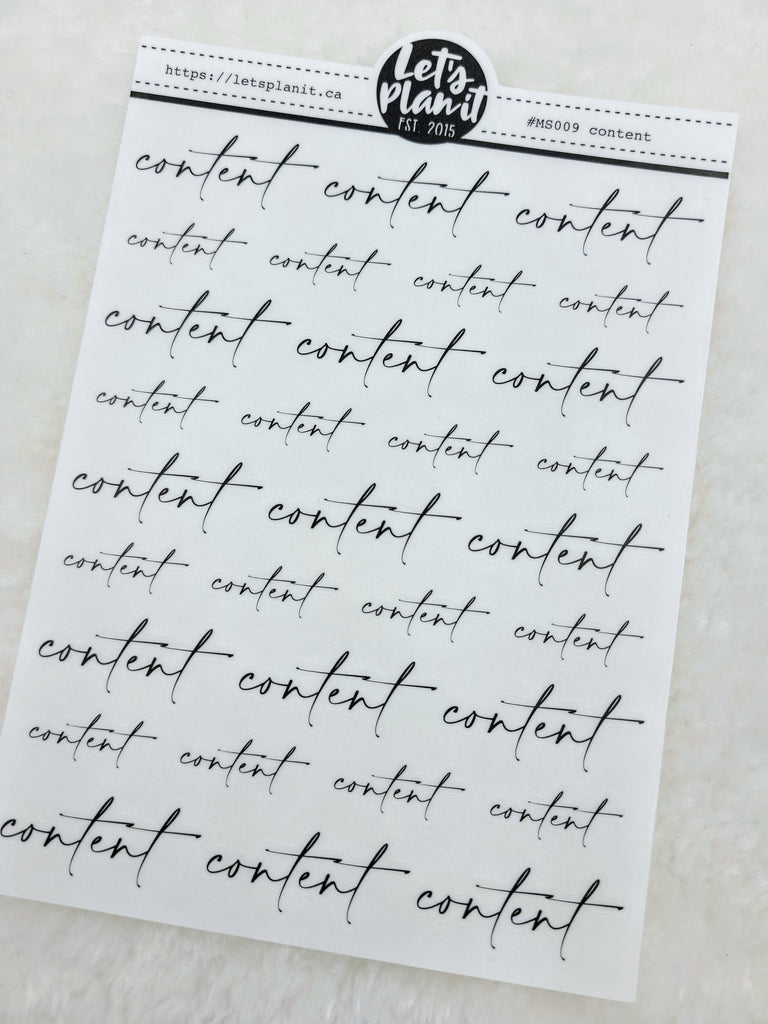 https://letsplanit.ca
Let's
plan it
EST. 2015
#MS009 content
content content content
content content content content
content content content
content content content content
content content content
content content content content
content content content
content content content content
content content content